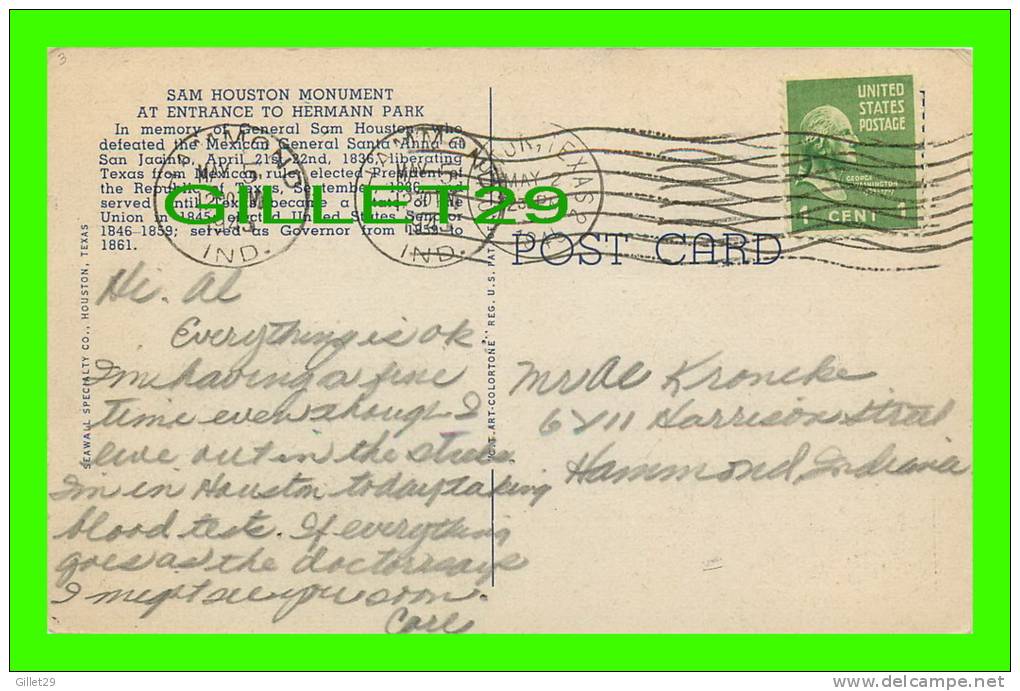 SAM HOUSTON MONUMENT
AT ENTRANCE TO HERMANN PARK
In memory of General Sam Houston, who
defeated the Mexican General Santa Anna at
San Jacinto, April 21st-22nd, 1836, liberating
Texas from Mexican rule; elected President of
the Republic of Texas, September, 1836, and
served until Texas became a State of the
Union in 1845; elected United States Senator
1846-1859; served as Governor from 1859 to
1861.
GILLET29
HAMMOND
MAY
IND.
HAMMOND
MAY
IND.
TEXAS
MAY 2
UNITED
STATES
POSTAGE
GEORGE
WASHINGTON
1 CENT 1
POST CARD
SEAWALL SPECIALTY CO., HOUSTON, TEXAS
"C.T. ART-COLORTONE" REG. U.S. PAT.
Hi. Al
Everything is ok
I'm having a fine
time even though I
live out in the sticks.
I'm in Houston today taking
blood tests. If everything
goes as the doctor says
I might see you soon.
Carl
Mr Al Kroneke
6711 Harrison Street
Hammond Indiana
Gillet29